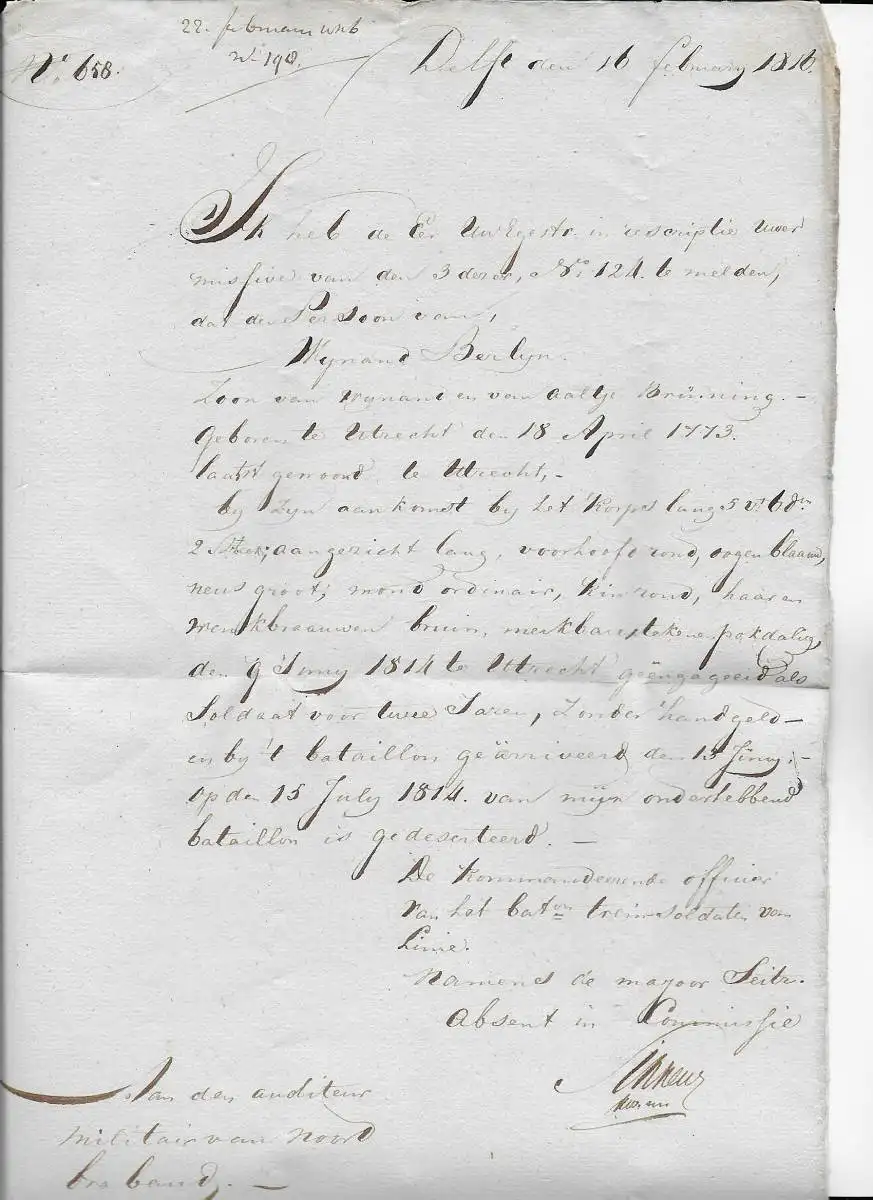 22. februarij 1816
N° 198.
N° 658.
Delft den 16 february 1816.
Ik heb de Eer UwEgestr. in rescriptie Uwer
missive van den 3 dezer, N° 124. te melden,
dat den Persoon van,
Wynand Berlyn.
Zoon van Wynand en van Aaltje Brünning. –
geboren te Utrecht den 18 April 1773.
laatst gewoond te Utrecht, –
by zyn aankomst by het Korps lang 5 vt 6 dm
2 Streek; aangezicht lang, voorhoofd rond, oogen blaauw,
neus groot; mond ordinair, kin rond, haar en
wenkbraauwen bruin, merkbare tekenen pokdalig,
den 9 Juny 1814 te Utrecht geëngageerd als
Soldaat voor twee Jaren, Zonder handgeld –
en by 't bataillon geärriveerd den 13 Juny. –
op den 15 July 1814. van mijn onderhebbend
bataillon is gedeserteerd. –
De Kommandeerende officier
van het baton trein-soldaten van
Linie.
Namens de mayoor Seitz.
absent in Commissie
Aan den auditeur
militair van Noord
braband. –